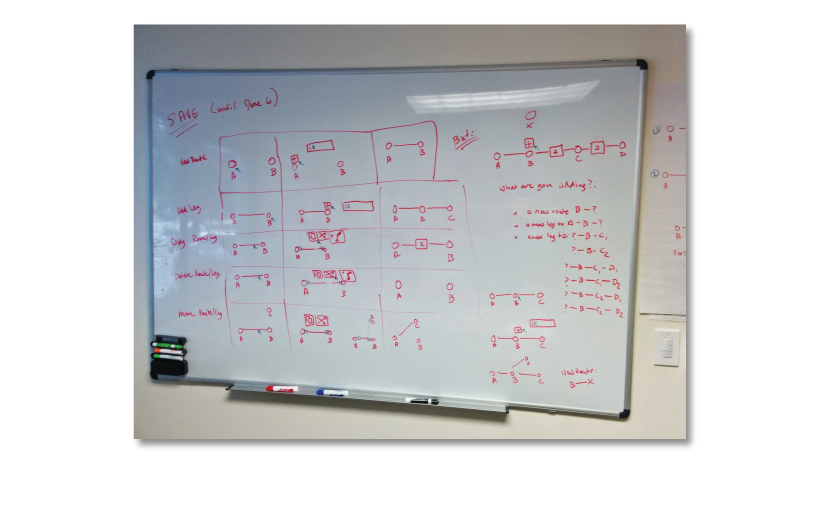 SAVE (until June 6)
But:
New Route
A B
A B
A B
Add Leg
A B
A B
A B C
Copy Route/Leg
A B
A B
A 2 B
Delete Route/Leg
A B
A B
A B
Move Route/Leg
C
A B
A B
C
A B
C
A B
X
A B 2 C 2 D
What are you adding?:
• a new route B - ?
• a new leg to A - B - ?
• a new leg to: ? - B - C₁
? - B - C₂
? - B - C₁ - D₁
? - B - C₁ - D₂
? - B - C₂ - D₁
? - B - C₂ - D₂
A B C
A B C
A B C
New Route:
B - X